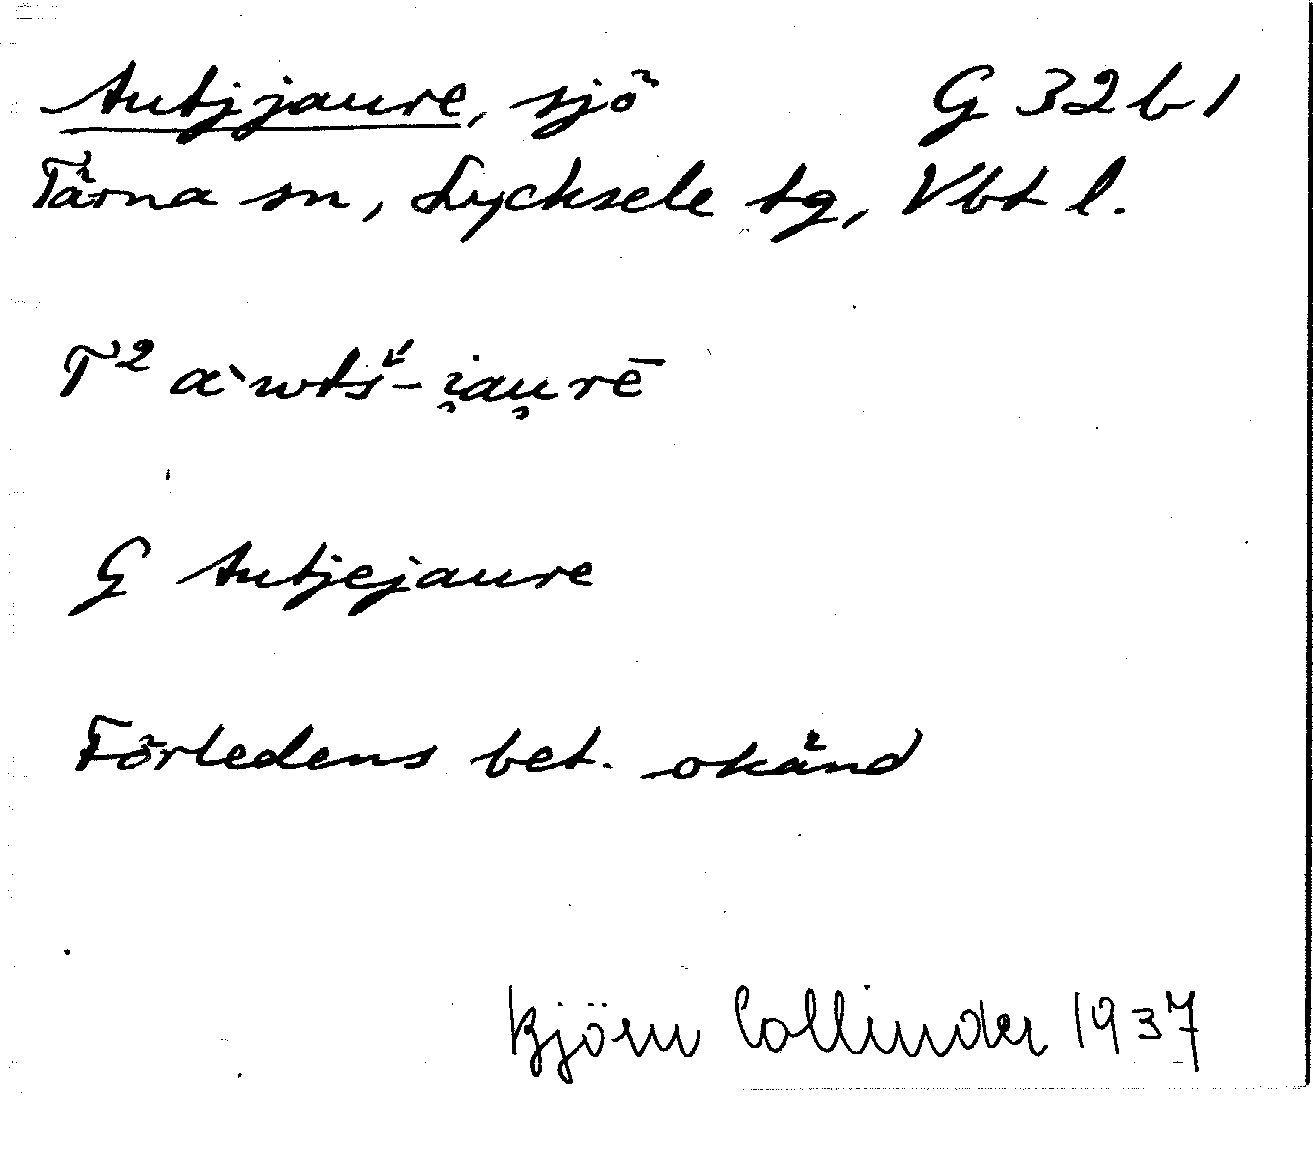 Autjjaure, sjö G 32 b 1
Tärna sn, Lycksele tg, Vbt l.
T² α`wtš́-i̯au̯rē
G Autjejaure
Förledens bet. okänd
Björn Collinder 1937